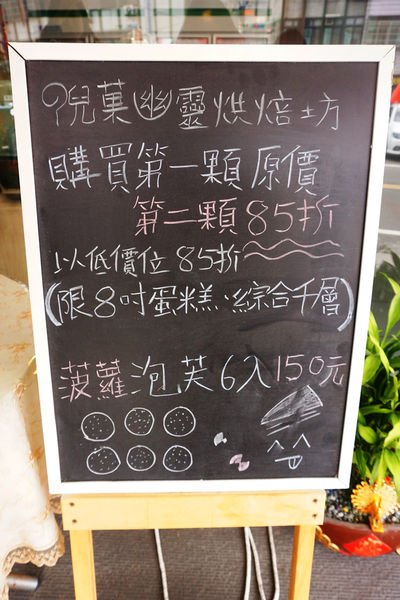 倪菓幽靈烘焙坊
購買第一顆原價
第二顆85折
以低價位85折
(限8吋蛋糕、綜合千層)
菠蘿泡芙6入150元